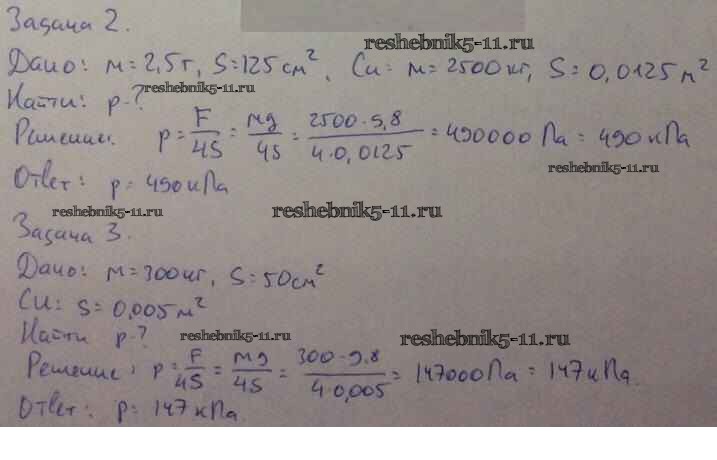 Задача 2.
reshebnik5-11.ru
Дано: m=2,5т, S=125см², Си: m=2500кг, S=0,0125м²
reshebnik5-11.ru
Найти: p-?
Решение: p = F/4S = mg/4S = 2500·9,8/4·0,0125 = 490000Па = 490кПа
reshebnik5-11.ru
Ответ: p=490кПа
reshebnik5-11.ru reshebnik5-11.ru
Задача 3.
Дано: m=300кг, S=50см²
Си: S=0,005м²
Найти p-?
reshebnik5-11.ru reshebnik5-11.ru
Решение: p = F/4S = mg/4S = 300·9,8/4·0,005 = 147000Па = 147кПа.
Ответ: p=147кПа.